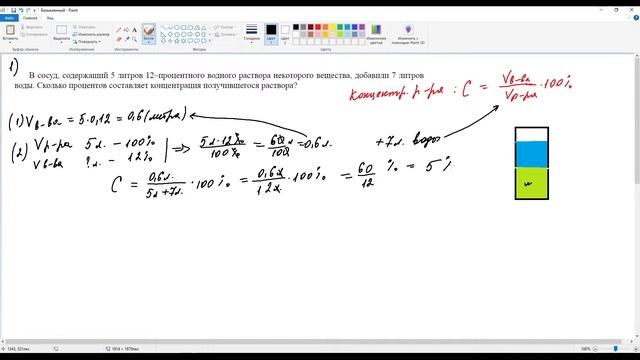 Безымянный - Paint
Файл Главная Вид
Вставить
Выделить
Кисти
Толщина
Цвет 1
Цвет 2
Изменение цветов
Изменить с помощью Paint 3D
Буфер обмена Изображение Инструменты Фигуры Цвета
1)
В сосуд, содержащий 5 литров 12–процентного водного раствора некоторого вещества, добавили 7 литров
воды. Сколько процентов составляет концентрация получившегося раствора?
Концентр. р-ра : C = Vв-ва/Vр-ра · 100%
(1) Vв-ва = 5·0,12 = 0,6 (литра)
(2) Vр-ра 5л. – 100%
Vв-ва ?л. – 12%
=> 5л·12%/100% = 60л/100 = 0,6л.
+7л. воды
C = 0,6л./5л+7л. · 100% = 0,6л/12л · 100% = 60/12 % = 5%
100%